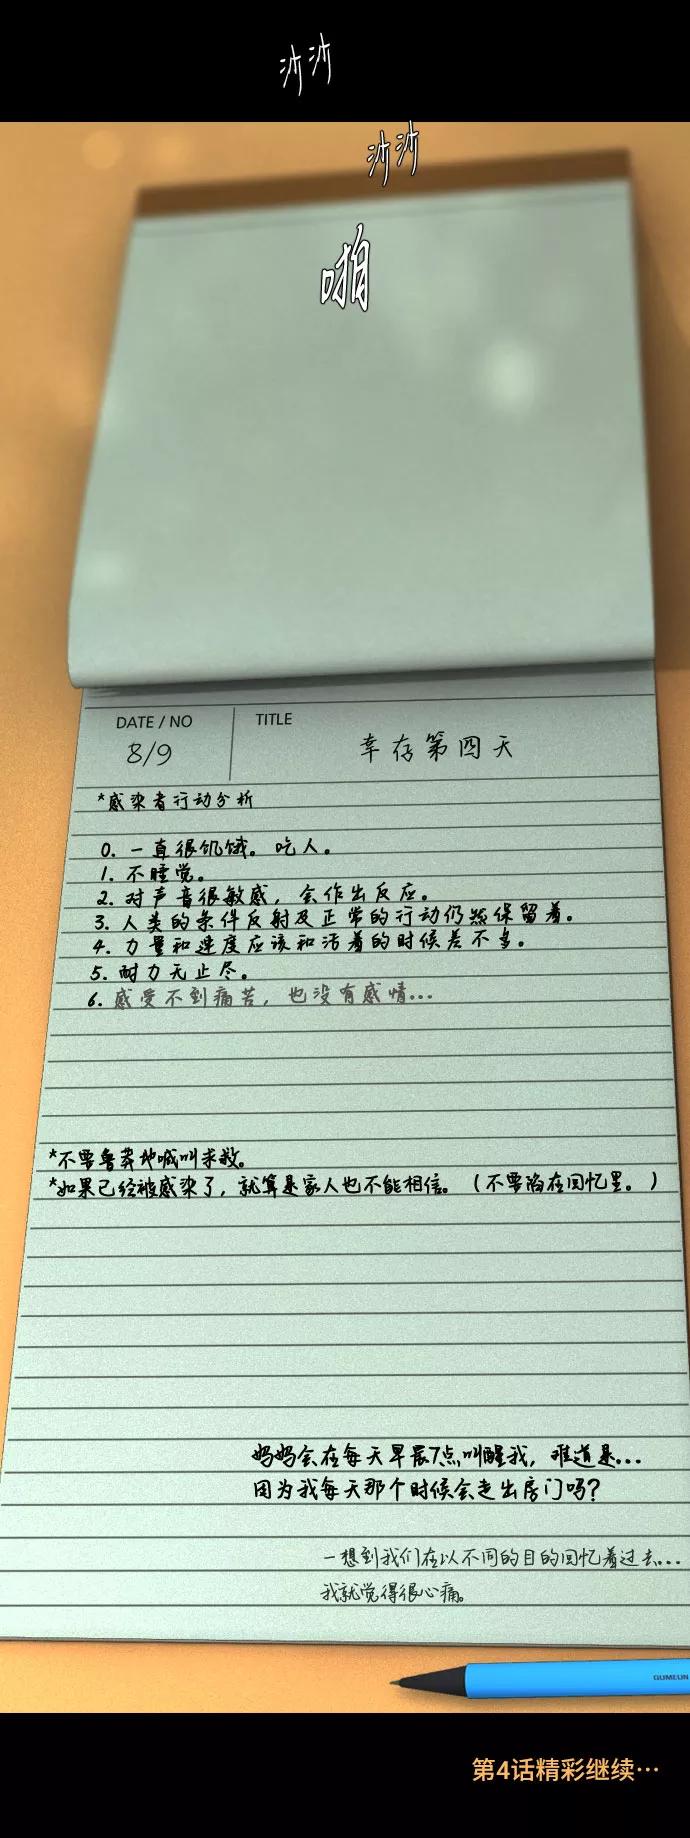 沙沙
沙沙
啪
DATE / NO
TITLE
8/9
幸存第四天
*感染者行动分析
0. 一直很饥饿。吃人。
1. 不睡觉。
2. 对声音很敏感，会作出反应。
3. 人类的条件反射及正常的行动仍然保留着。
4. 力量和速度应该和活着的时候差不多。
5. 耐力无止尽。
6. 感受不到痛苦，也没有感情...
*不要鲁莽地喊叫求救。
*如果已经被感染了，就算是家人也不能相信。（不要陷在回忆里。）
妈妈会在每天早晨7点叫醒我，难道是...
因为我每天那个时候会走出房门吗？
一想到我们在以不同的目的回忆着过去...
我就觉得很心痛。
GUMEUN
第4话精彩继续…